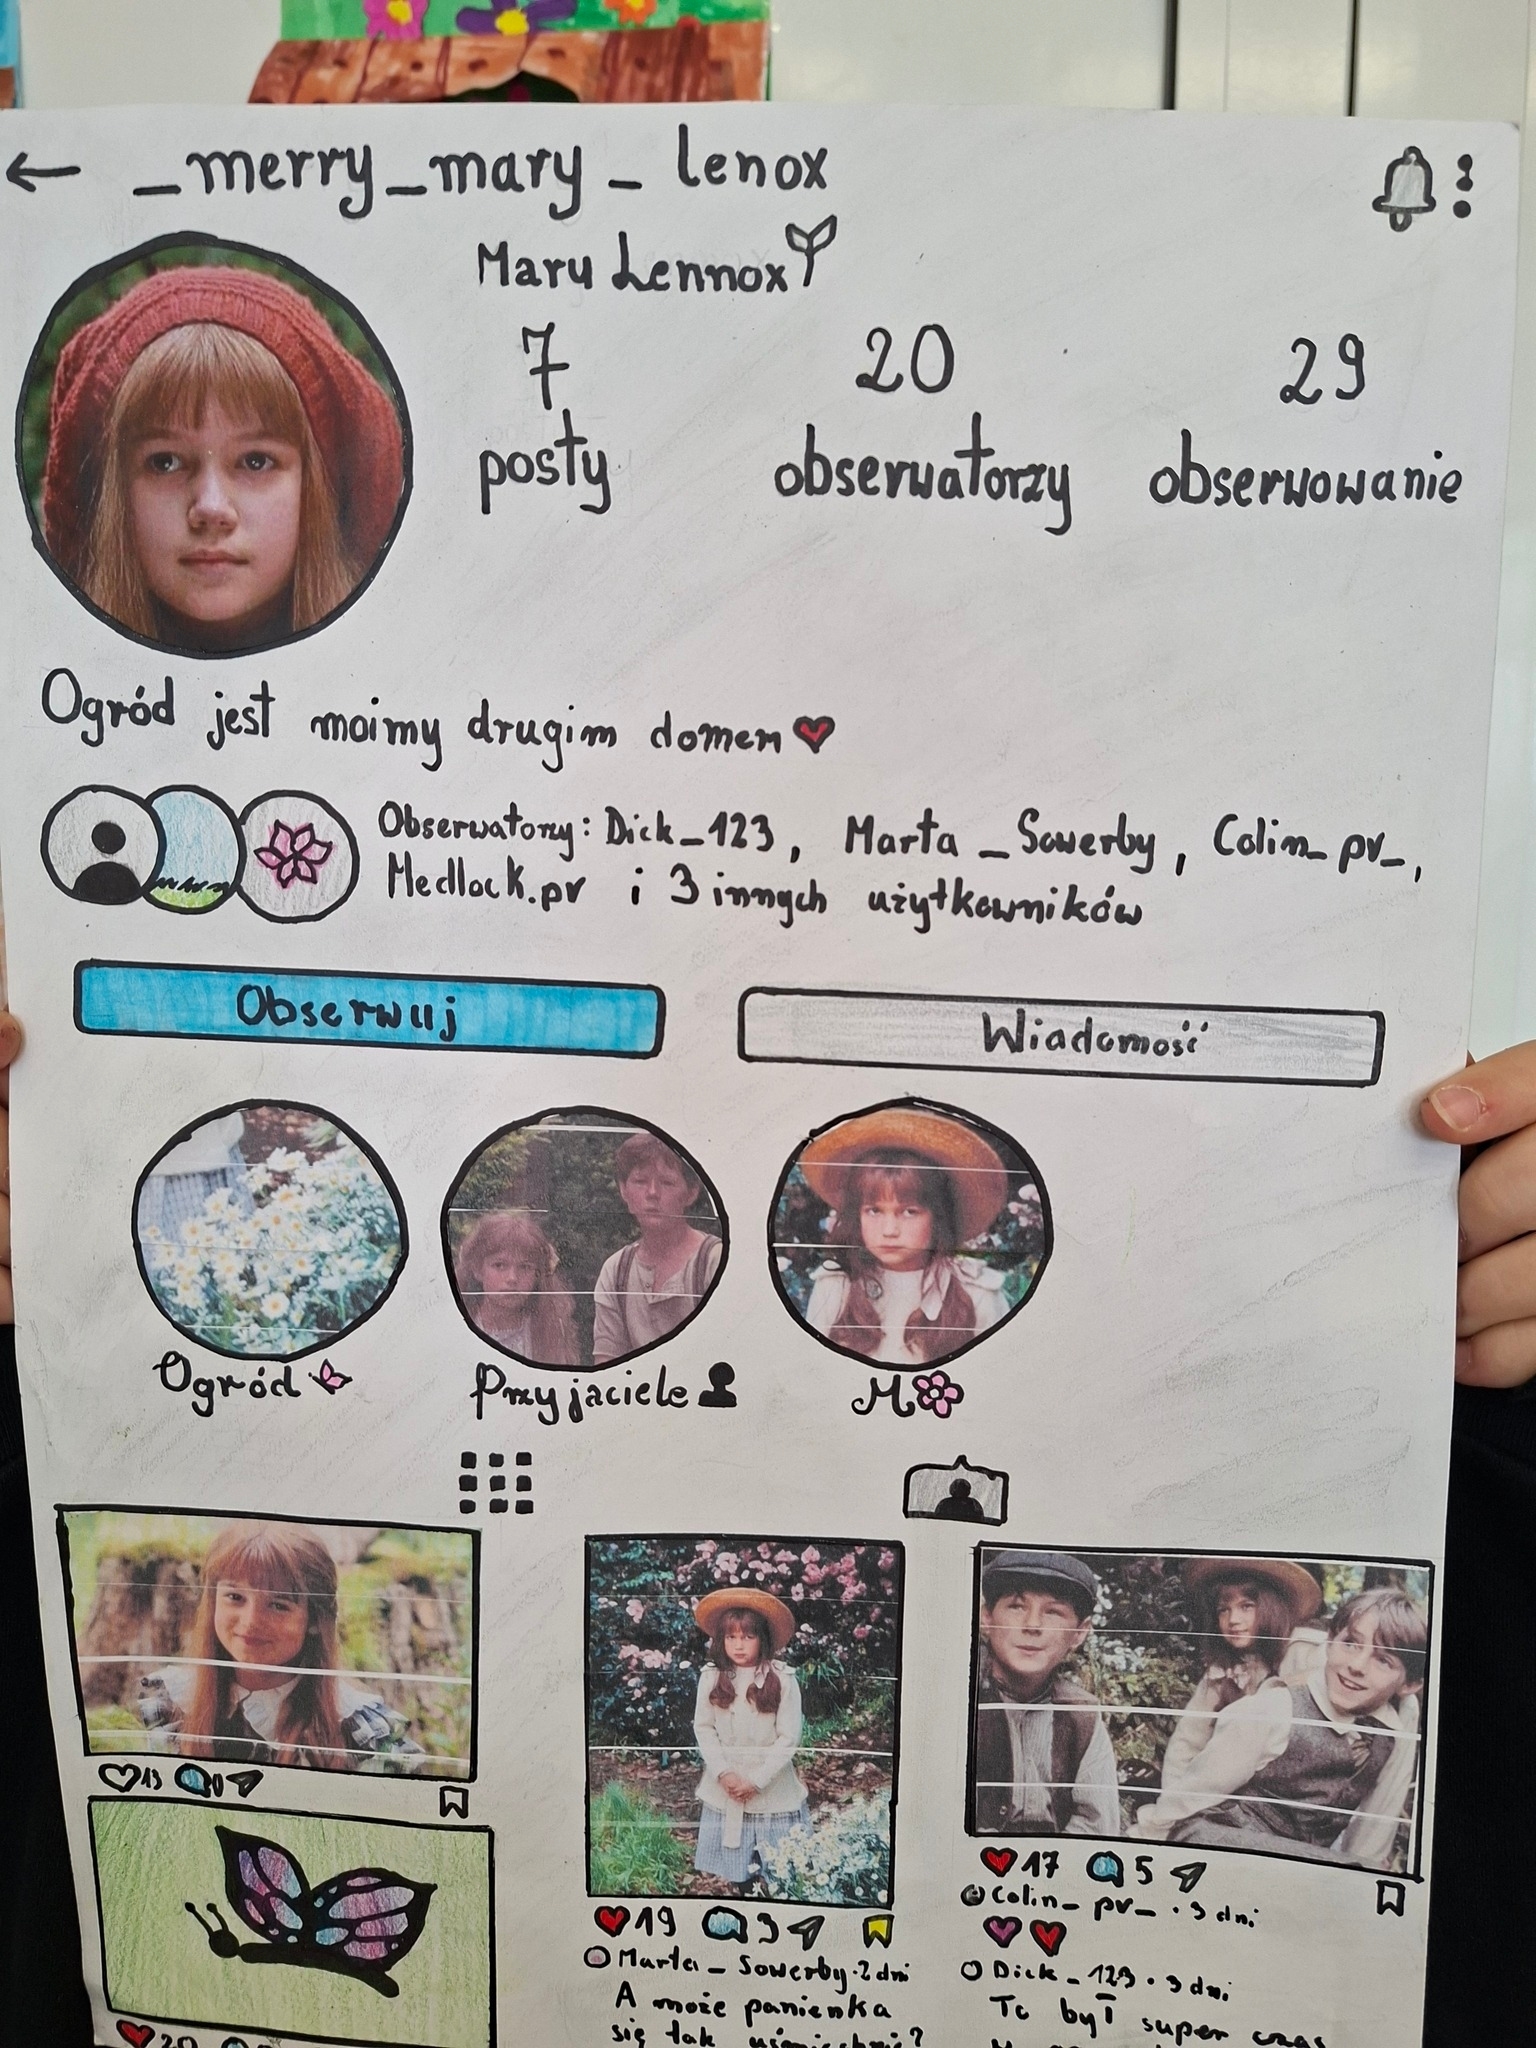 ← _merry_mary_lenox
Maru Lennox
7 20 29
posty obserwatorzy obserwowanie
Ogród jest moimy drugim domem
Obserwatorzy: Dick_123, Marta_Sowerby, Colin_pv_,
Medlock.pv i 3 innych użytkowników
Obserwuj
Wiadomość
Ogród
Przyjaciele
M
13 0
20
19 3
Marta_Sowerby·2 dni
A może panienka
się tak uśmiechnie?
17 5
Colin_pv_·3 dni
Dick_123·3 dni
To był super czas